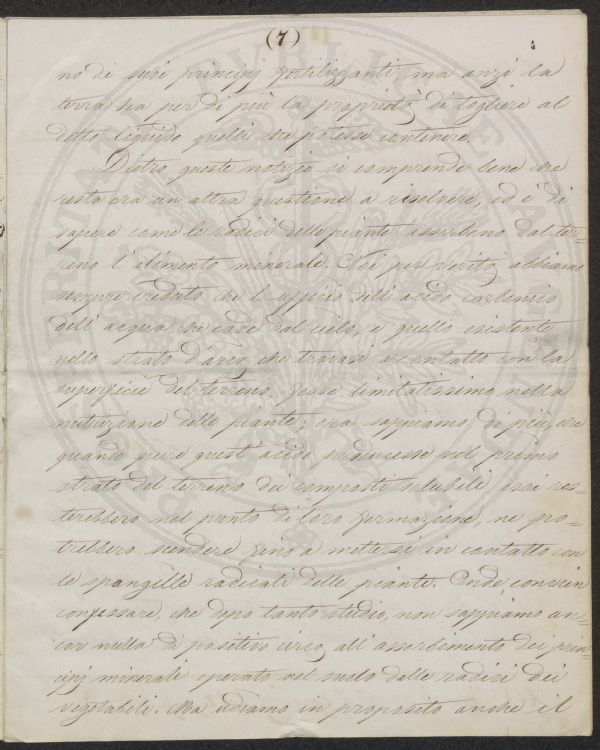 (7)
no di suoi principj fertilizzanti, ma anzi la
terra ha per di più la proprietà di togliere al
detto liquido quelli che potesse contenere.
Dietro queste notizie si comprende bene che
resta ora un altra questione a risolvere, ed è di
sapere come le radici delle piante assorbono dal ter-
reno l'alimento minerale. Noi per verità abbiamo
sempre creduto che l'ufficio dell'acido carbonico
dell'acqua che cade dal cielo, e quello esistente
nello strato d'aria che trovasi a contatto con la
superficie del terreno fosse limitatissimo nella
nutrizione delle piante; ora sappiamo di più, che
quando pure quest'acido producesse nel primo
strato del terreno dei composti solubili essi res-
terebbero nel punto di loro formazione, ne po-
trebbero scendere fino a mettersi in contatto con
le spongille radicali delle piante. Onde convien
confessare, che dopo tanto studio, non sappiamo an-
cor nulla di positivo circa all'assorbimento dei prin-
cipj minerali operato nel suolo dalle radici dei
vegetabili. Ma udiamo in proposito anche il